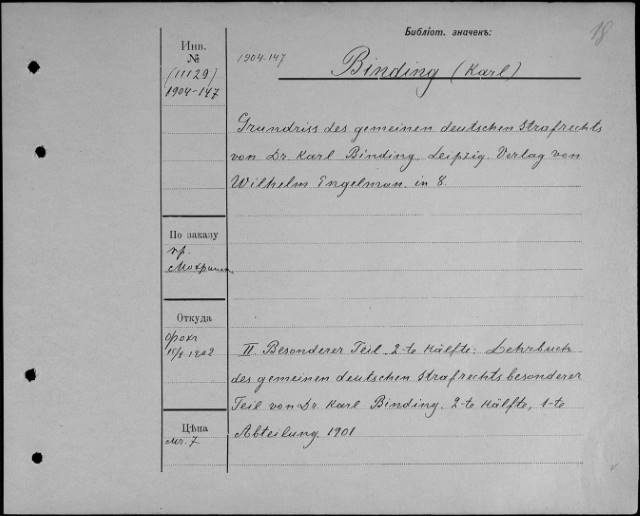 Библіот. значекъ:
18
Инв.
№
(11129)
1904-147
1904-147
Binding (Karl)
Grundriss des gemeinen deutschen Strafrechts
von Dr. Karl Binding Leipzig. Verlag von
Wilhelm Engelman. in 8.
По заказу
пр.
Откуда
15/X 1902
II Besonderer Teil 2-te Hälfte: Lehrbuch
des gemeinen deutschen Strafrechts besonderer
Teil von Dr. Karl Binding. 2-te Hälfte, 1-te
Abteilung. 1901
Цѣна
Mr. 7